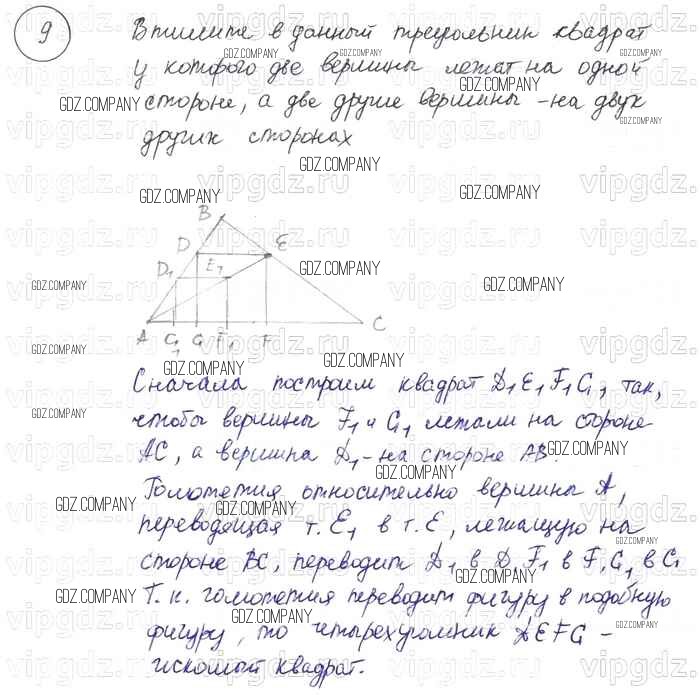 9
Впишите в данный треугольник квадрат
у которого две вершины лежат на одной
стороне, а две другие вершины - на двух
других сторонах
B
D E
D₁ E₁
A G₁ G F₁ F C
Сначала построим квадрат D₁E₁F₁G₁, так,
чтобы вершины F₁ и G₁ лежали на стороне
AC, а вершина D₁ - на стороне AB.
Гомотетия относительно вершины A,
переводящая т. E₁ в т. E, лежащую на
стороне BC, переводит D₁ в D, F₁ в F, G₁ в G
Т. к. гомотетия переводит фигуру в подобную
фигуру, то четырехугольник DEFG -
искомый квадрат.
GDZ.COMPANY
vipgdz.ru